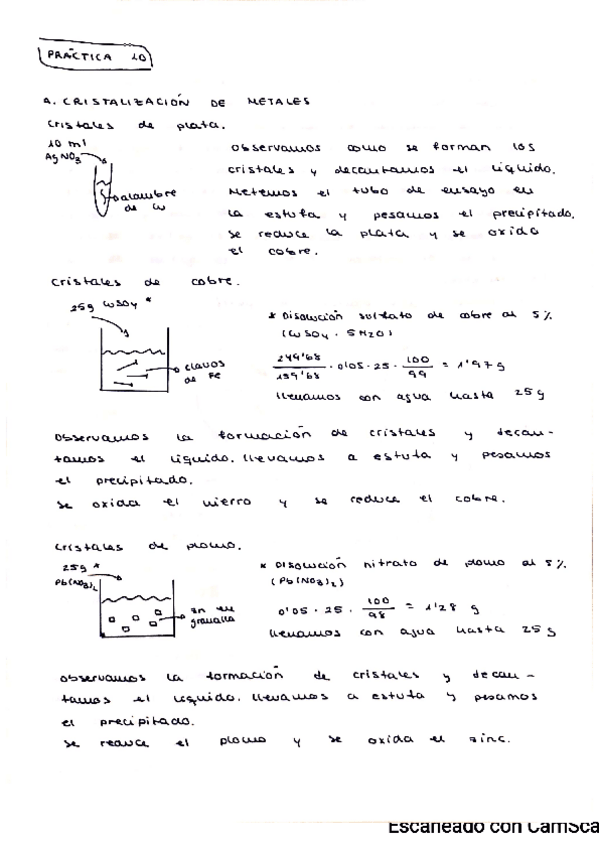 PRÁCTICA 10
A. CRISTALIZACIÓN DE METALES
Cristales de plata.
10 ml
AgNO3
alambre
de Cu
Observamos como se forman los
cristales y decantamos el líquido.
Metemos el tubo de ensayo en
la estufa y pesamos el precipitado.
Se reduce la plata y se oxida
el cobre.
Cristales de cobre.
25g CuSO4 *
clavos
de Fe
* Disolución sulfato de cobre al 5%
(CuSO4 · 5H2O)
249'68/159'68 · 0'05 · 25 · 100/99 = 1'97g
llenamos con agua hasta 25g
Observamos la formación de cristales y decan-
tamos el líquido. Llevamos a estufa y pesamos
el precipitado.
Se oxida el hierro y se reduce el cobre.
Cristales de plomo.
25g *
Pb(NO3)2
Zn en
granalla
* Disolución nitrato de plomo al 5%
(Pb(NO3)2)
0'05 · 25 · 100/98 = 1'28 g
llenamos con agua hasta 25g
Observamos la formación de cristales y decan-
tamos el líquido. Llevamos a estufa y pesamos
el precipitado.
Se reduce el plomo y se oxida el zinc.
Escaneado con CamSca